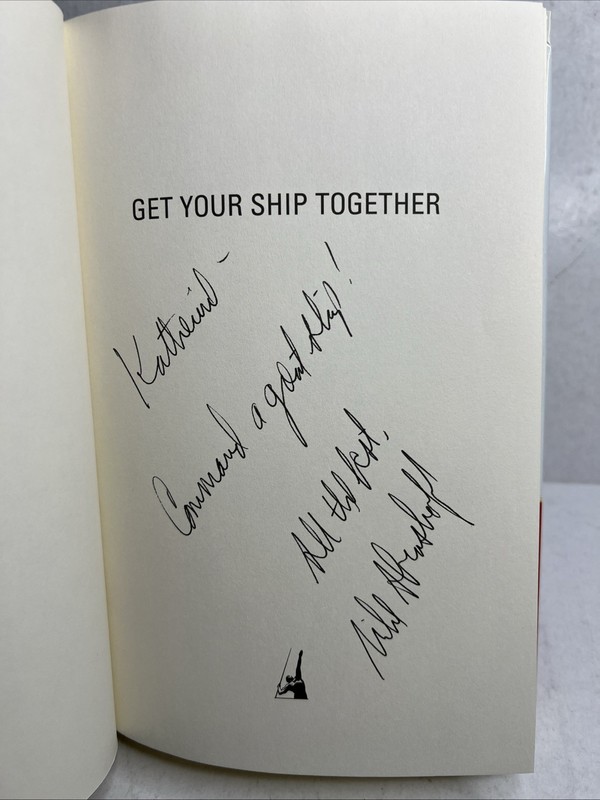 GET YOUR SHIP TOGETHER
Command a great ship!
All the best,
Mike Abrashoff